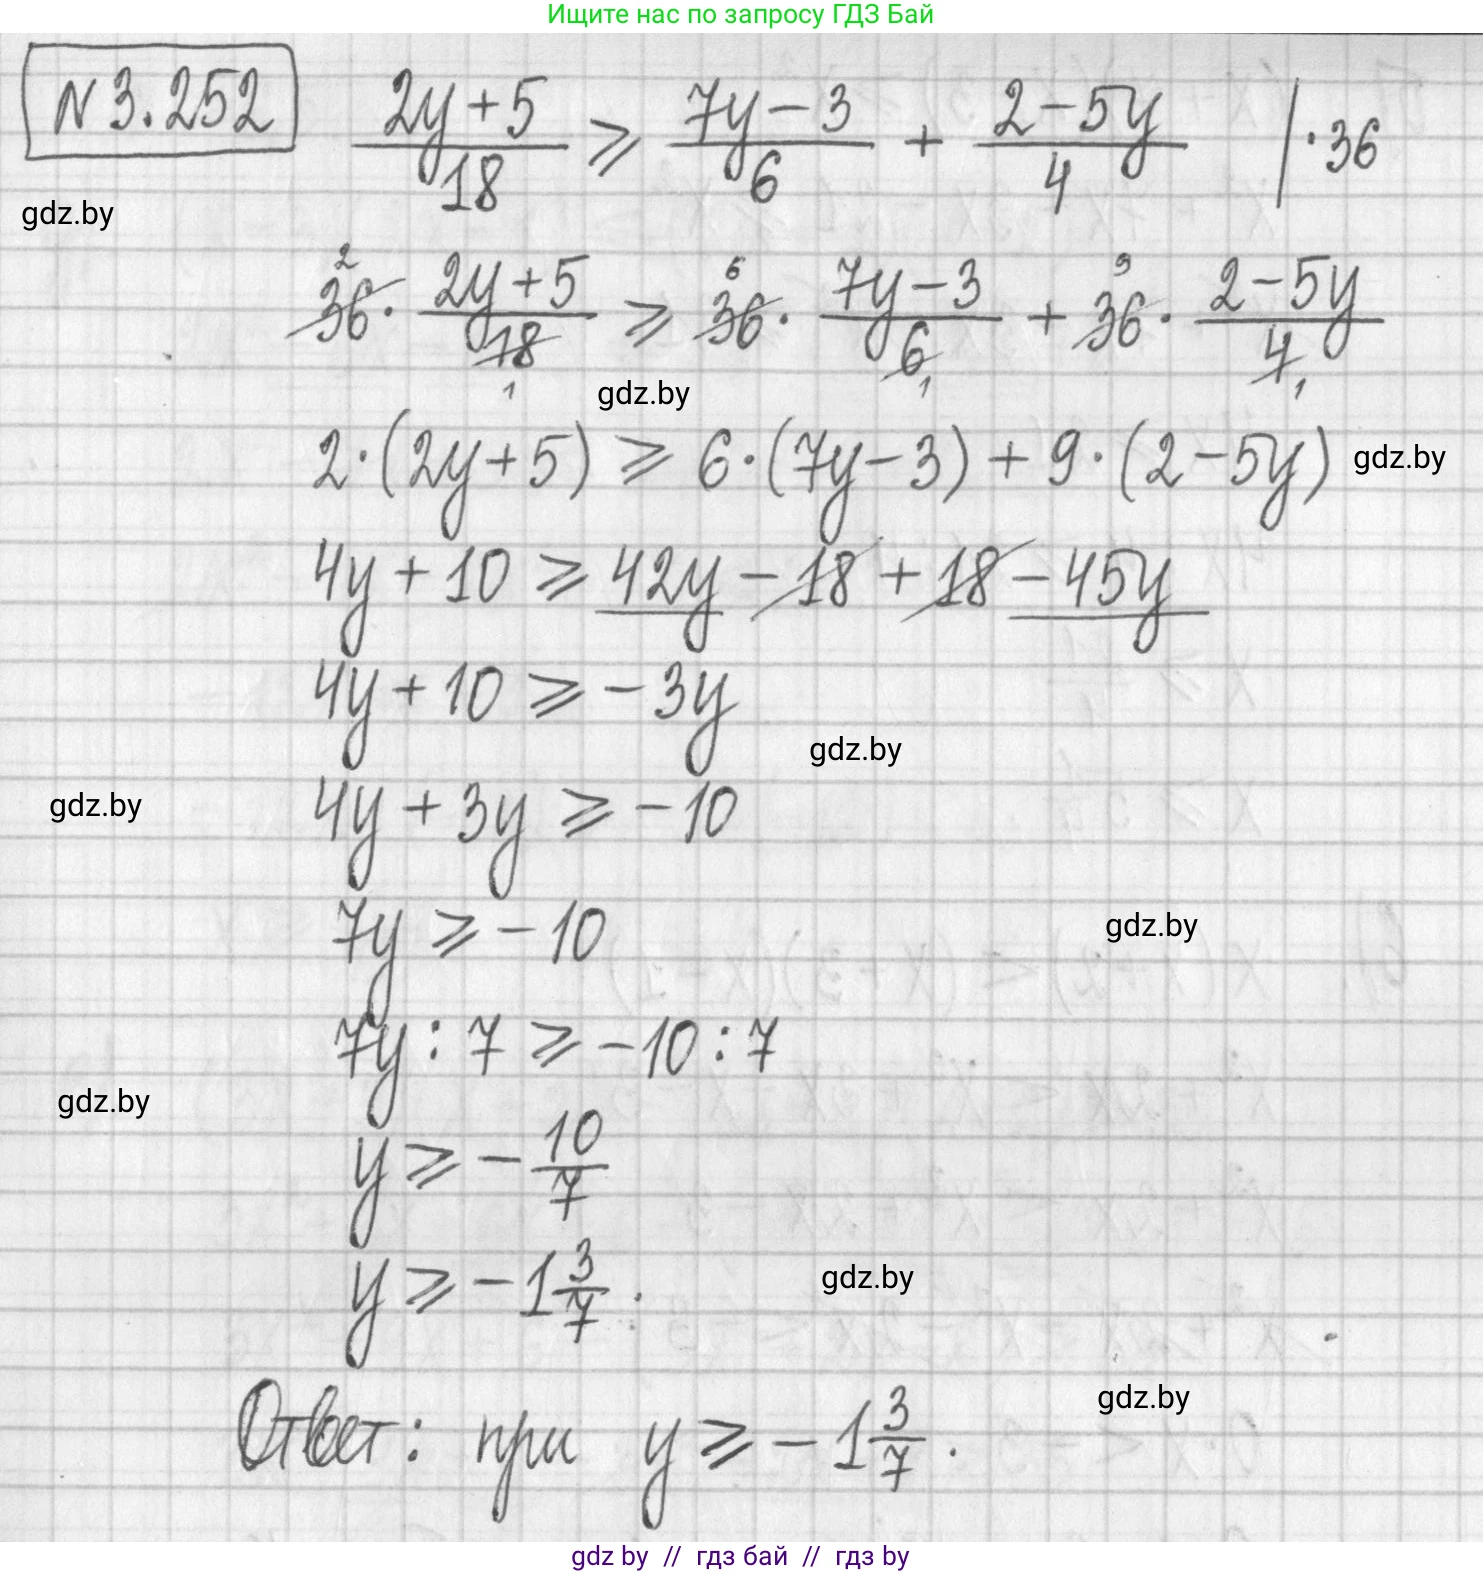 Ищите нас по запросу ГДЗ Бай
N 3.252 (2y+5)/18 ⩾ (7y−3)/6 + (2−5y)/4 | ·36
gdz.by
36² · (2y+5)/18₁ ⩾ 36⁶ · (7y−3)/6₁ + 36⁹ · (2−5y)/4₁
gdz.by
2·(2y+5) ⩾ 6·(7y−3) + 9·(2−5y)
gdz.by
4y + 10 ⩾ 42y − 18 + 18 − 45y
4y + 10 ⩾ −3y
gdz.by
gdz.by
4y + 3y ⩾ −10
7y ⩾ −10
gdz.by
7y : 7 ⩾ −10 : 7
gdz.by
y ⩾ −10/7
y ⩾ −1 3/7.
gdz.by
gdz.by
Ответ: при y ⩾ −1 3/7.
gdz by // гдз бай // гдз by